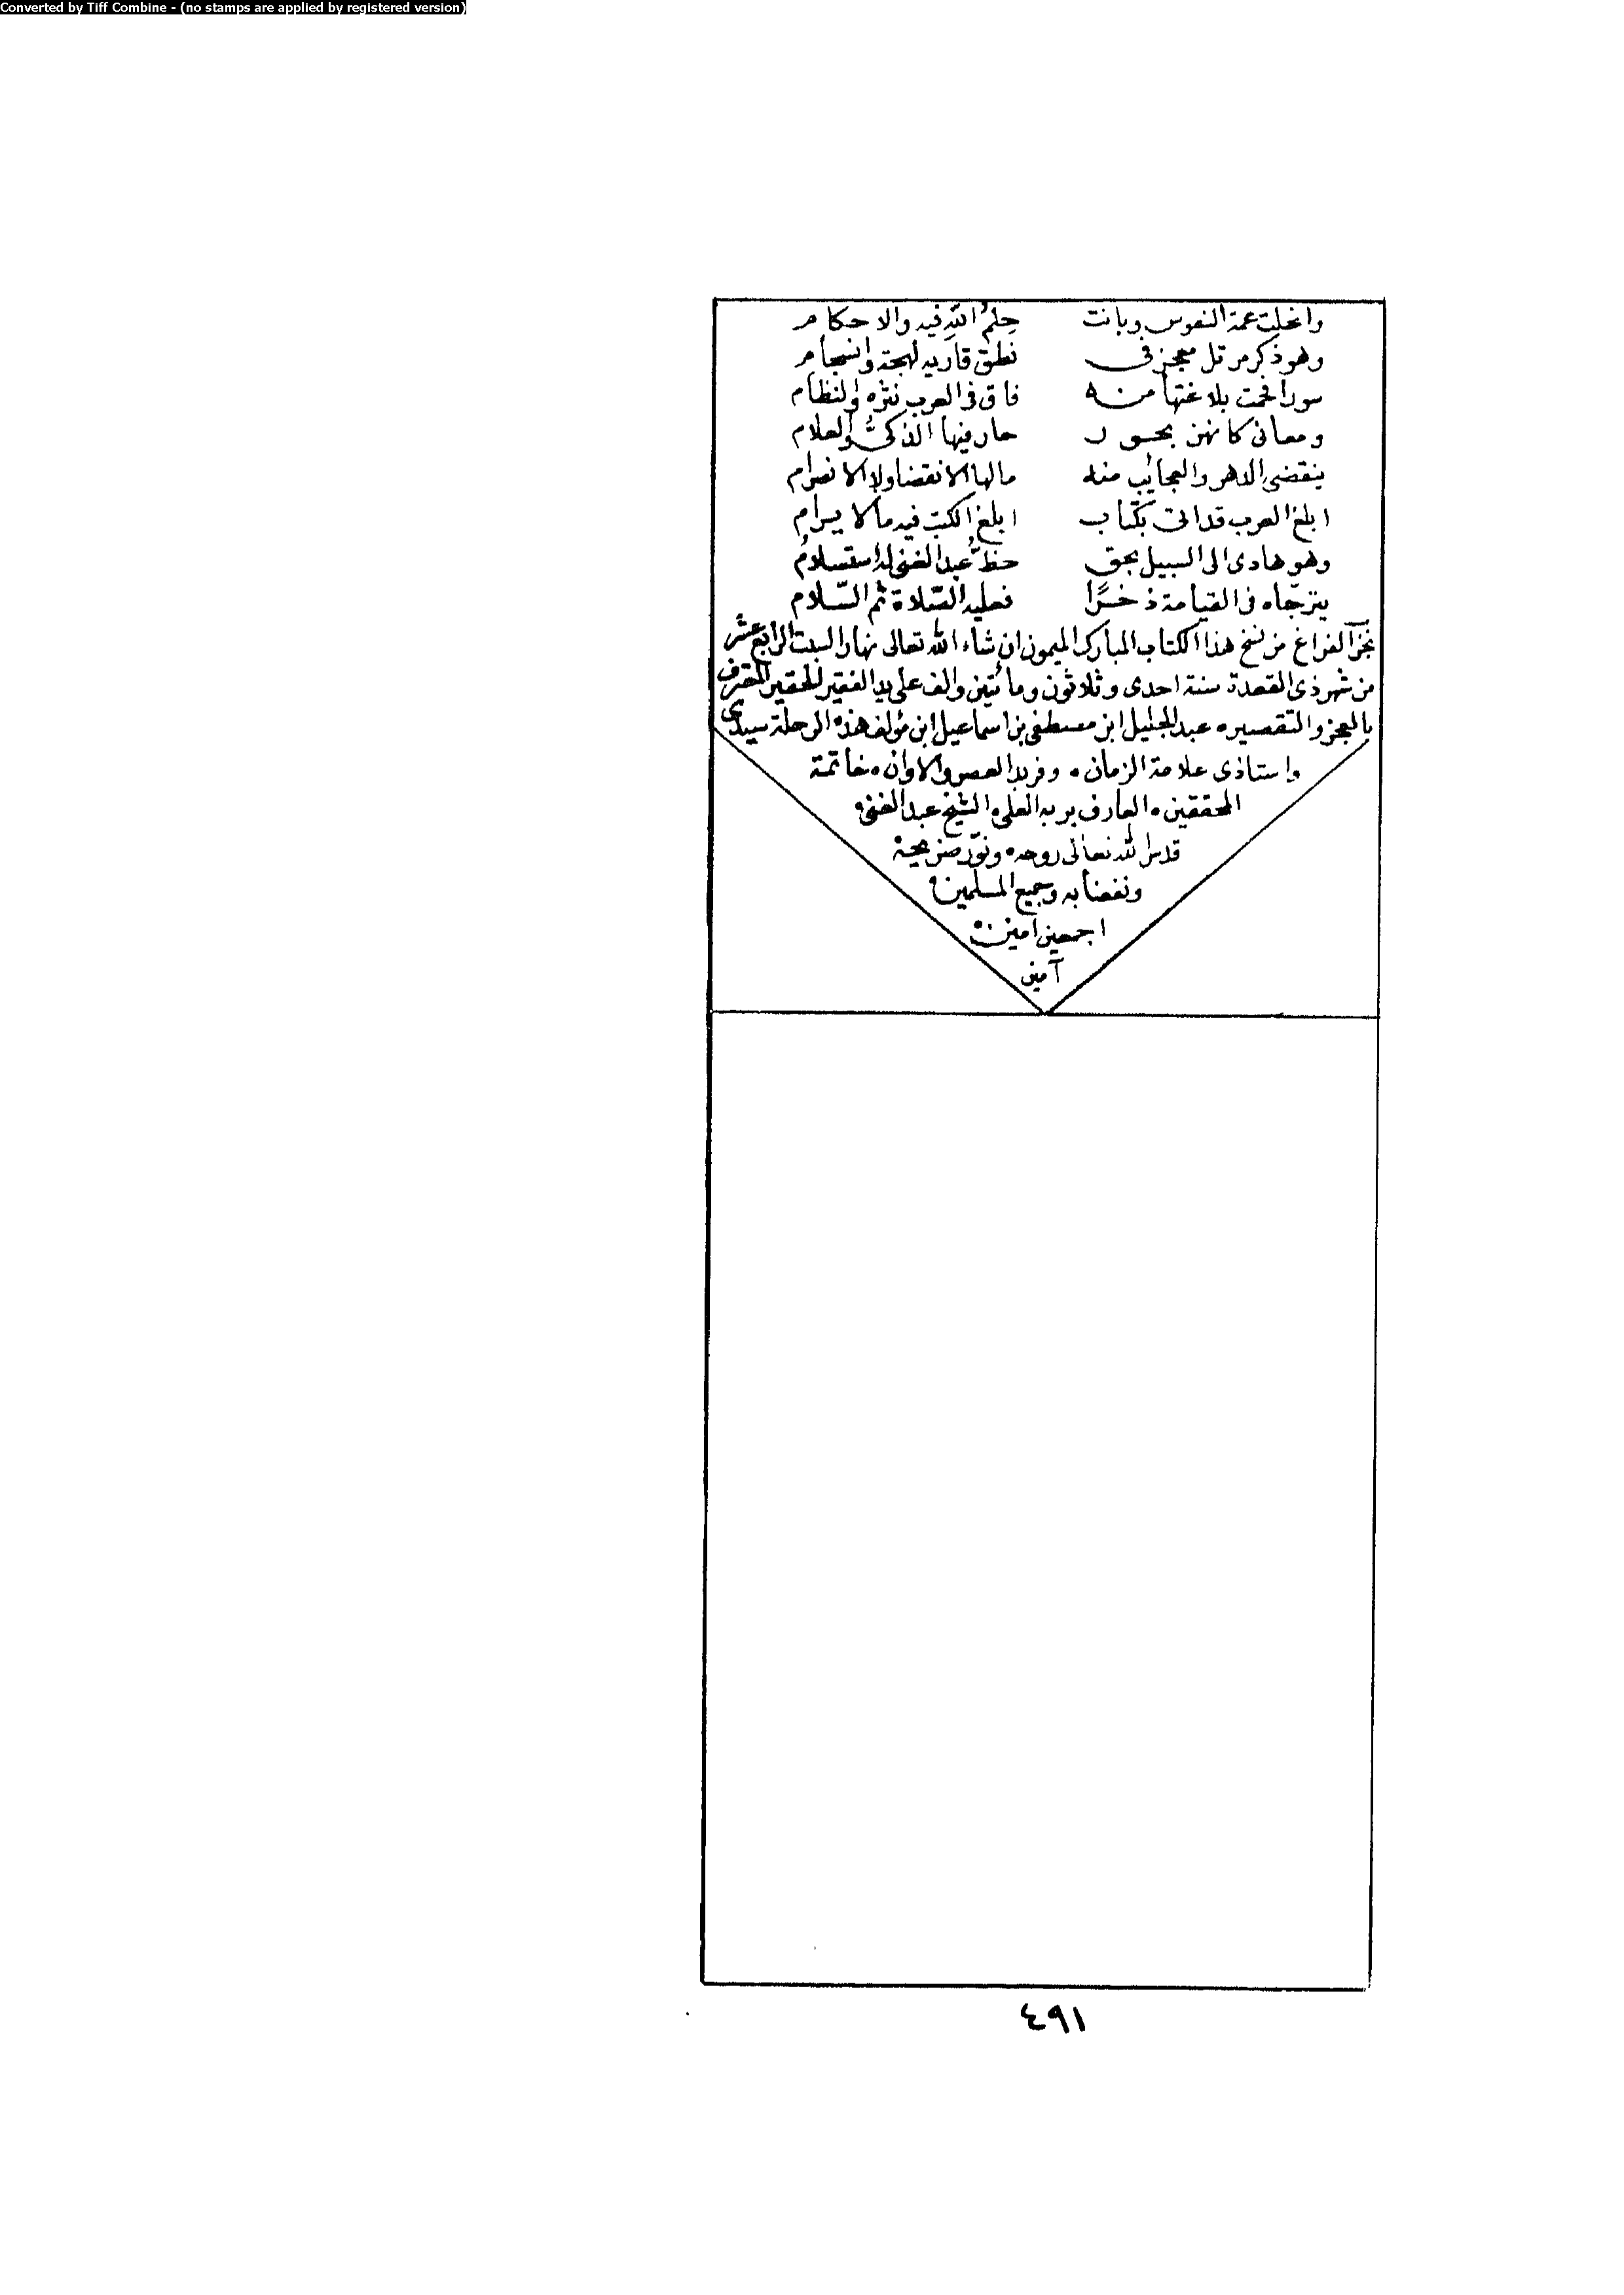 Converted by Tiff Combine - (no stamps are applied by registered version)
وانجلت غمة النفوس وبانت حِكمُ اللهِ فيه والاحكام
وهو ذكر مرتل معجز في نطق قاريه لهجة وانسجام
سورا فحمت بلاغتها منه فاق في العرب نثره والنظام
ومعاني كانهن بحور حار فيها الذكيُّ والعلام
ينقضي الدهر والعجائب منه مالها الانقضا ولا الانصرام
ابلغ العرب قد اتى بكتاب ابلغ الكتب فيه مالا يرام
وهو هادى الى السبيل بحق حظّ عبد الغنى له استسلامُ
يترجّاه في القيامة ذخرًا فعليه الصّلاة ثم السّلام
نجز الفراغ من نسخ هذا الكتاب المبارك الميمون ان شاء الله تعالى نهار السبت الرابع عشر
من شهر ذى القعدة سنة احدى وثلاثون ومائتين والف على يد الفقير الحقير المعترف
بالعجز والتقصير عبد الجليل ابن مصطفى بن اسماعيل ابن مؤلف هذه الرحلة سيدى
واستاذى علامة الزمان وفريد العصر والاوان خاتمة
المحققين العارف بربه العلى الشيخ عبد الغنى
قدس الله تعالى روحه ونوّر ضريحه
ونفعنا به وجميع المسلمين
اجمعين امين
آمين
٤٩١